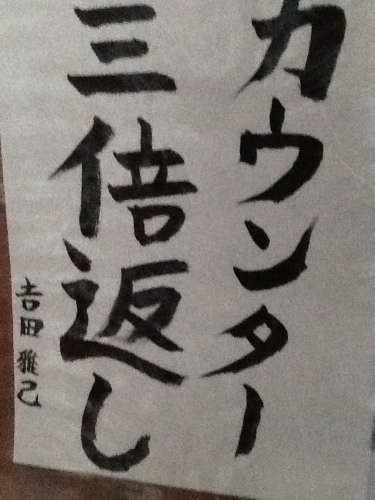 カウンター
三倍返し
吉田雅己